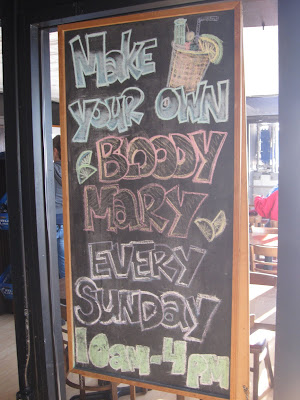 Make
YOUR OWN
BLOODY
MARY
EVERY
SUNDAY
10am-4pm